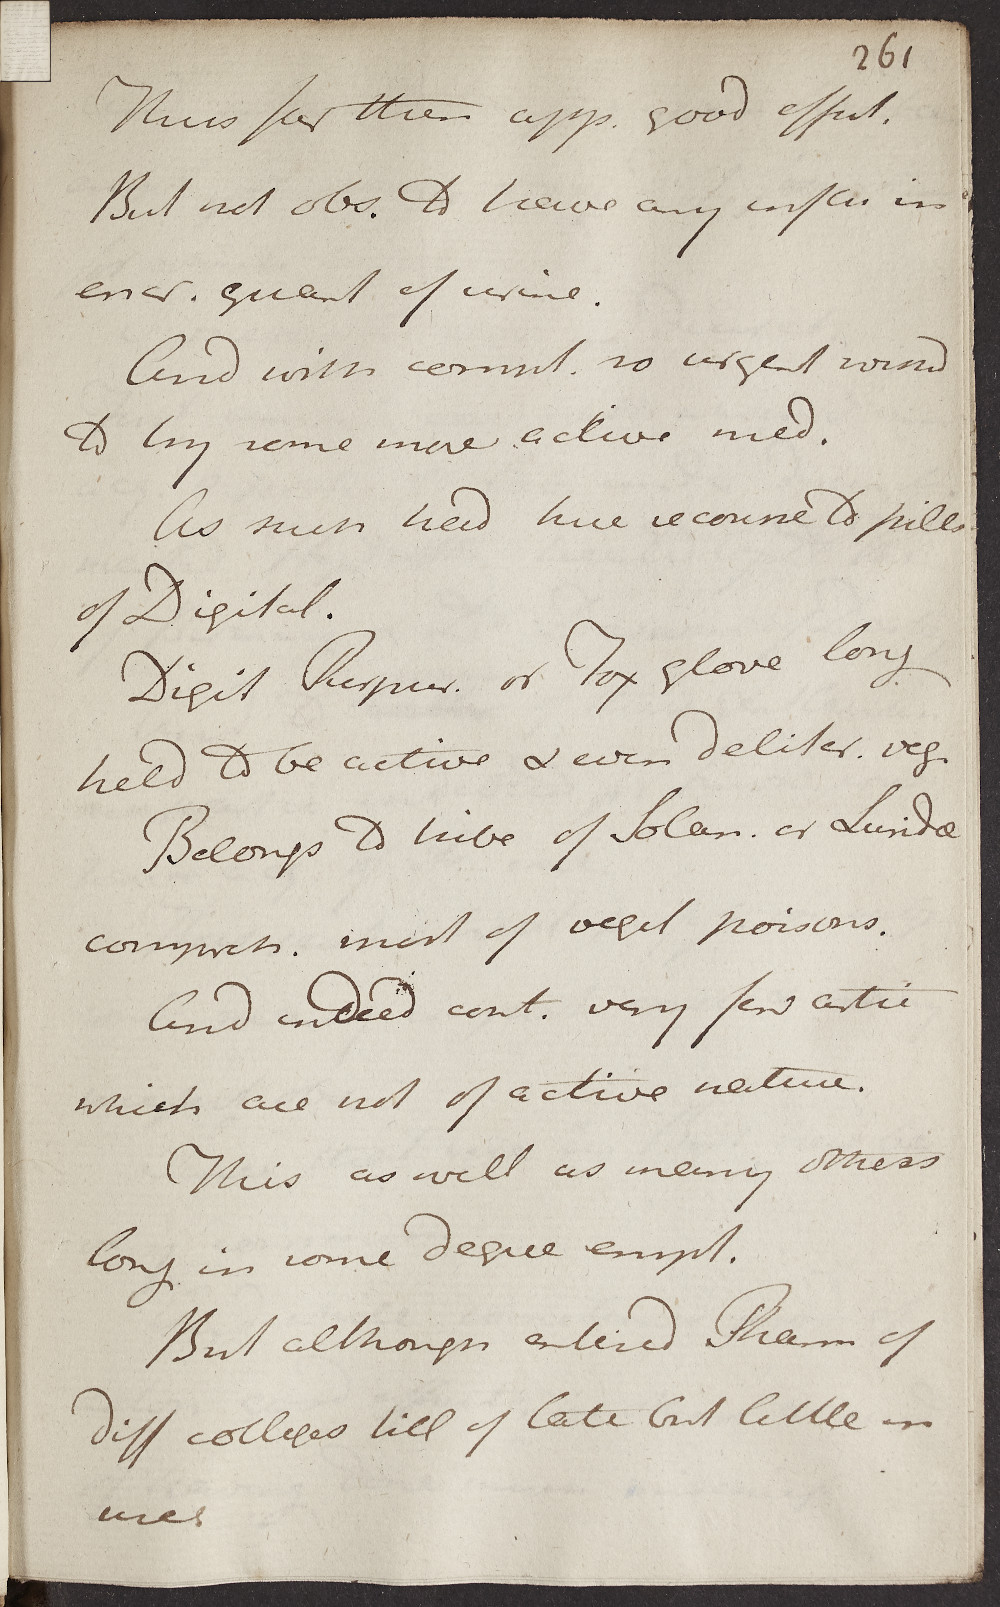 261
Thus far then app. good effect.
But not obs. to have any influ in
encr. quant of urine.
And with compl. so urgent wishd
to try some more active med.
As such had here recourse to pills
of Digital.
Digit Purpur. or Fox glove long
held to be active & even deliter. veg.
Belongs to tribe of Solan. or Luridæ
compreh. most of veget poisons.
And indeed cont. very few artic
which are not of active nature.
This as well as many others
long in some degree empl.
But although entered Pharm of
diff colleges till of late but little in
use